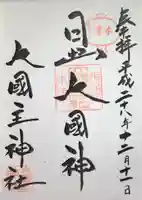 奉拝 平成二十八年十二月十一日
日出大國神
大國主神社